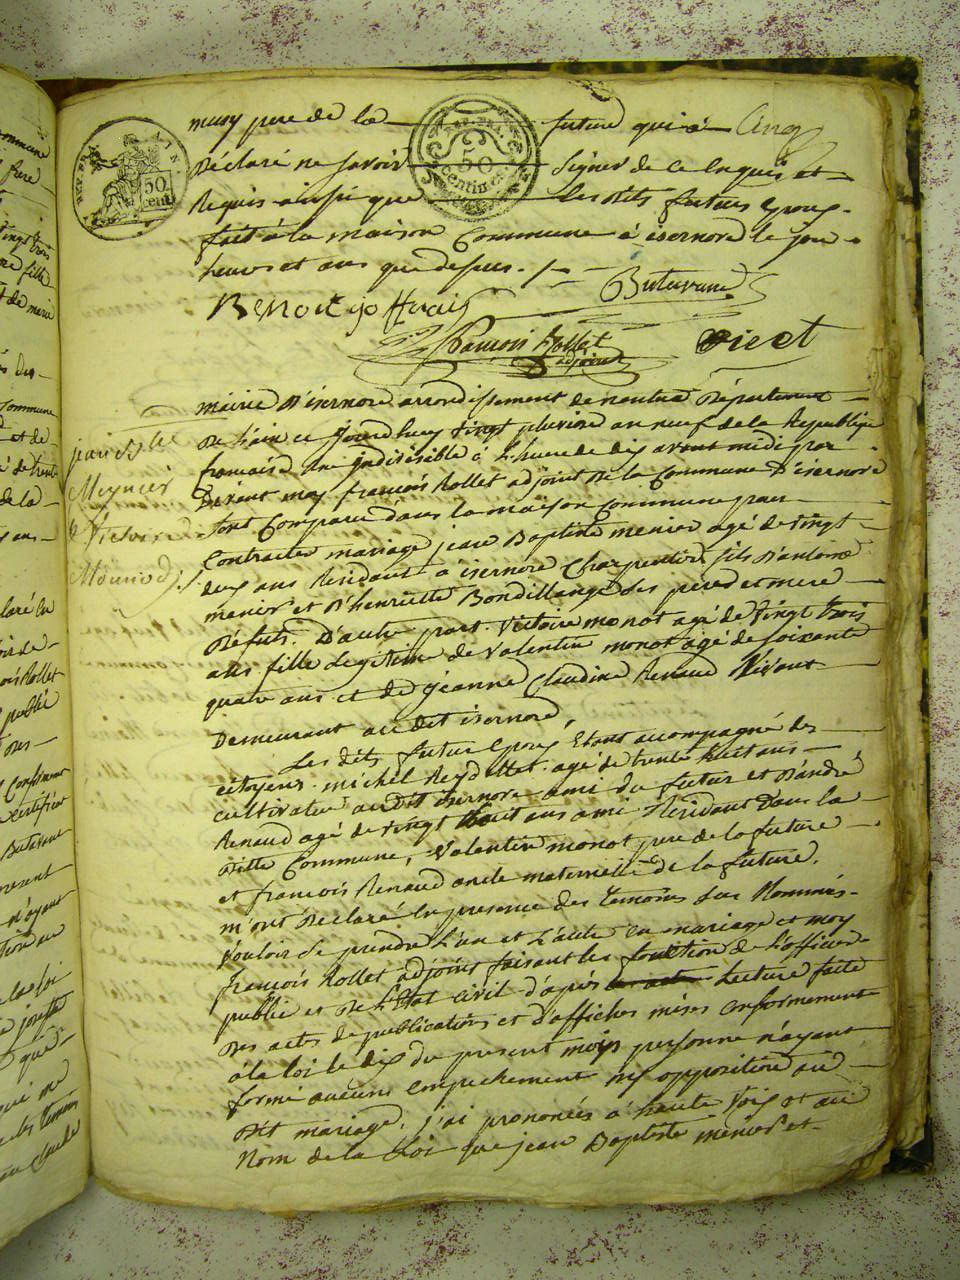 musy pere de la future qui a Cinq
Déclaré ne savoir signer de ce enquis et
Requis ainsi que les dits futurs Epoux.
fait à la maison Commune à isernord le jour
heures et ans que dessus ./.
REP. FRA.
50
cent.
REP. FRA.
50
centimes
Butavand
Benoit joffrais
François Rollet
adjoint
Picet
mairie D'isernore arrondissement de nantua Département
De l'ain ce jourd'huy vingt pluviose an neuf de la Republique
francaise une indivisible à l'heure de dix avant midi par
Devant moy françois Rollet adjoint de la Commune D'isernore
sont Comparu dans la maison Commune pour
Contracter mariage jean Baptiste menier agé de vingt
deux ans Residant à isernore Charpentier fils D'antoine
menier et D'henriette Bondillange ses pere et mere
Défuts. D'autre part Victoire monot agé de Vingt trois
ans fille Legitime de Valentin monot agé de soixante
quatre ans et de jeanne Claudine Renaud Vivant
Demeurant au dit isernord,
Les dits futur Epoux Etant accompagné des
citoyens michel Reydellet agé de trente huit ans
cultivateur audit isernore ami du futur et D'andré
Renaud agé de vingt huit ans ami Résidant Dans la
ditte Commune, Valentin monot pere de la future
et francois Renaud oncle maternelle de la future,
m'ont Déclaré en presence des temoins sus Nommés
Vouloir se prendre L'un et L'autre en mariage et moy
françois Rollet adjoint faisant les fonction de L'officier
public et De L'Etat civil d'apres Lecture faite
Des actes de publications et d'affiches mises conformement
à la loi le dix du present mois personne n'ayant
formé aucuns Empechement ny opposition au
Dit mariage, j'ai prononcés à haute Voix et au
Nom de la Loi que jean Baptiste menier et
jean Bte
Meynier
& Victoire
Monod